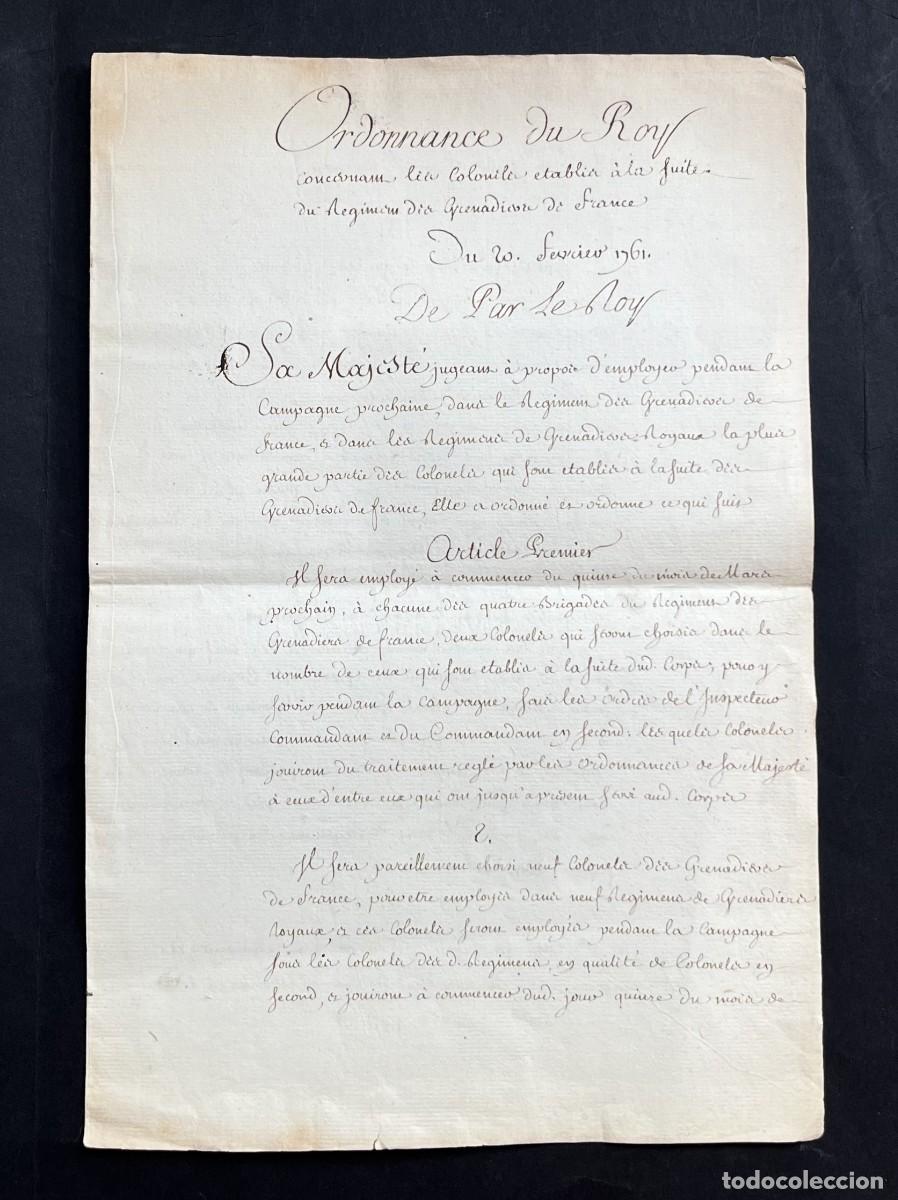 Ordonnance du Roy
concernant les Colonels etablis à la suite
du Regiment des Grenadiers de France
Du 20. fevrier 1761.
De Par Le Roy
Sa Majesté jugeant à propos d'employer pendant la
Campagne prochaine, dans le Regiment des Grenadiers de
france, & dans les Regimens de Grenadiers-Royaux la plus
grande partie des Colonels qui sont etablis à la suite des
Grenadiers de france, Elle a ordonné et ordonne ce qui suit
Article Premier
Il sera employé à commencer du quinze du mois de Mars
prochain, à chacune des quatre Brigades du Regiment des
Grenadiers de france, deux Colonels qui seront choisis dans le
nombre de ceux qui sont etablis à la suite dud. Corps; pour y
servir pendant la campagne, sous les ordres de l'Inspecteur
Commandant et du Commandant en second: lesquels Colonels
jouiront du traitement reglé par les ordonnances de sa Majesté
à ceux d'entre eux qui ont jusqu'a present servi aud. Corps
2.
Il sera pareillement choisi neuf Colonels des Grenadiers
de France, pour etre employés dans neuf Regimens de Grenadiers
Royaux, & ces Colonels seront employés pendant la Campagne
sous les Colonels des d. Regimens, en qualité de Colonels en
second, & jouiront à commencer dud. jour quinze du mois de
todocoleccion